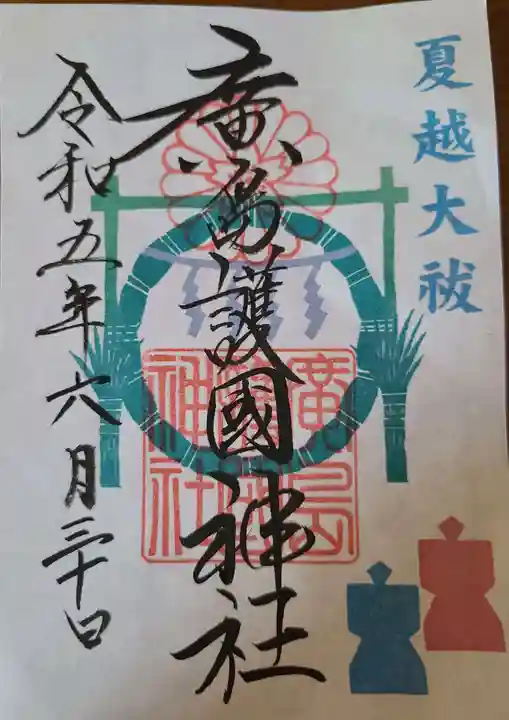 夏越大祓
廣島護國神社
令和五年六月三十日
廣島
護國
神社